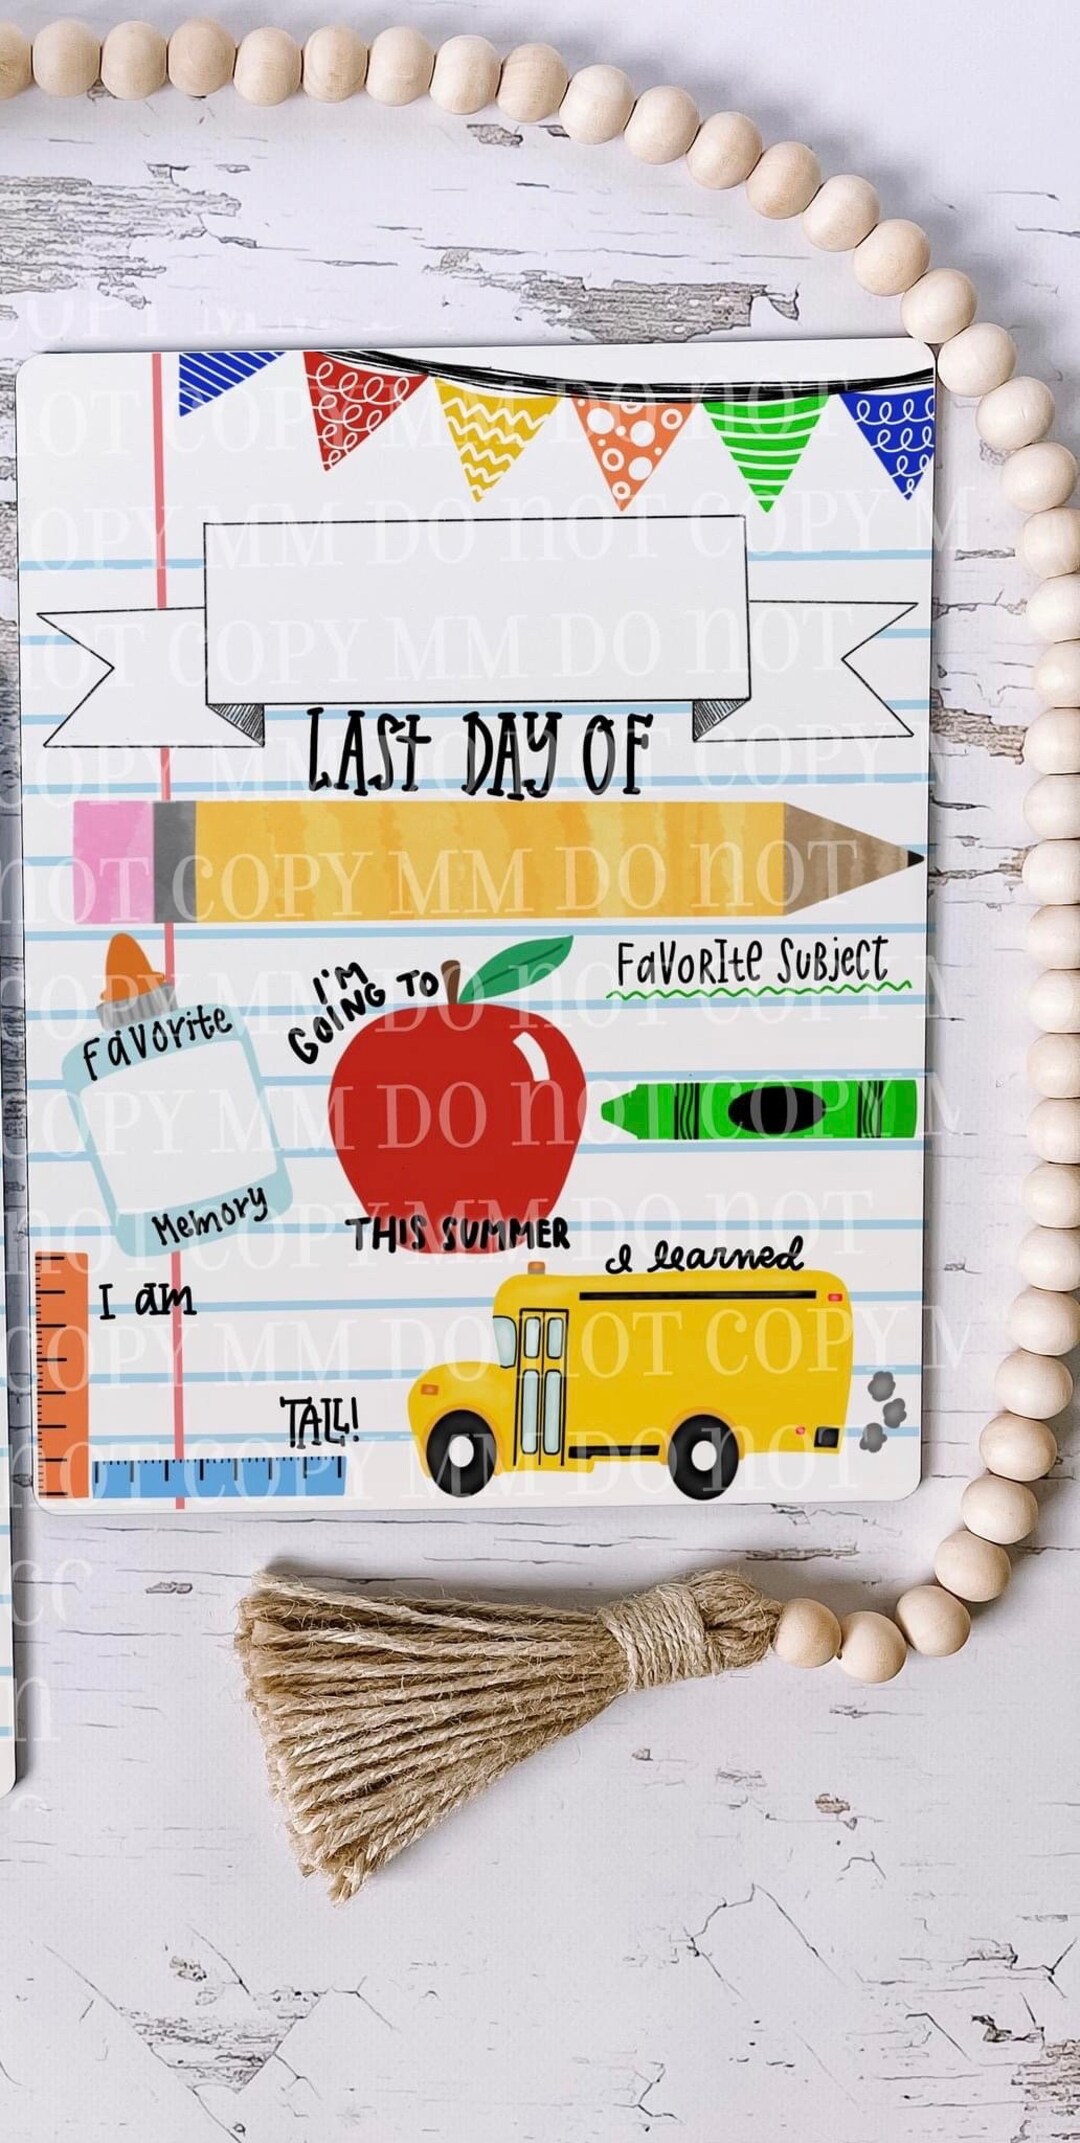 LAST DAY OF
FAVORITE SUBJECT
I'M
GOING TO
FAVORITE
MEMORY
THIS SUMMER
I learned
I AM
TALL!
COPY MM DO NOT
NOT COPY MM DO NOT
COPY MM DO NOT COPY M
NOT COPY MM DO NOT
NOT COPY MM DO NOT
COPY MM DO NOT COPY M
NOT COPY MM DO NOT
COPY MM DO NOT COPY M